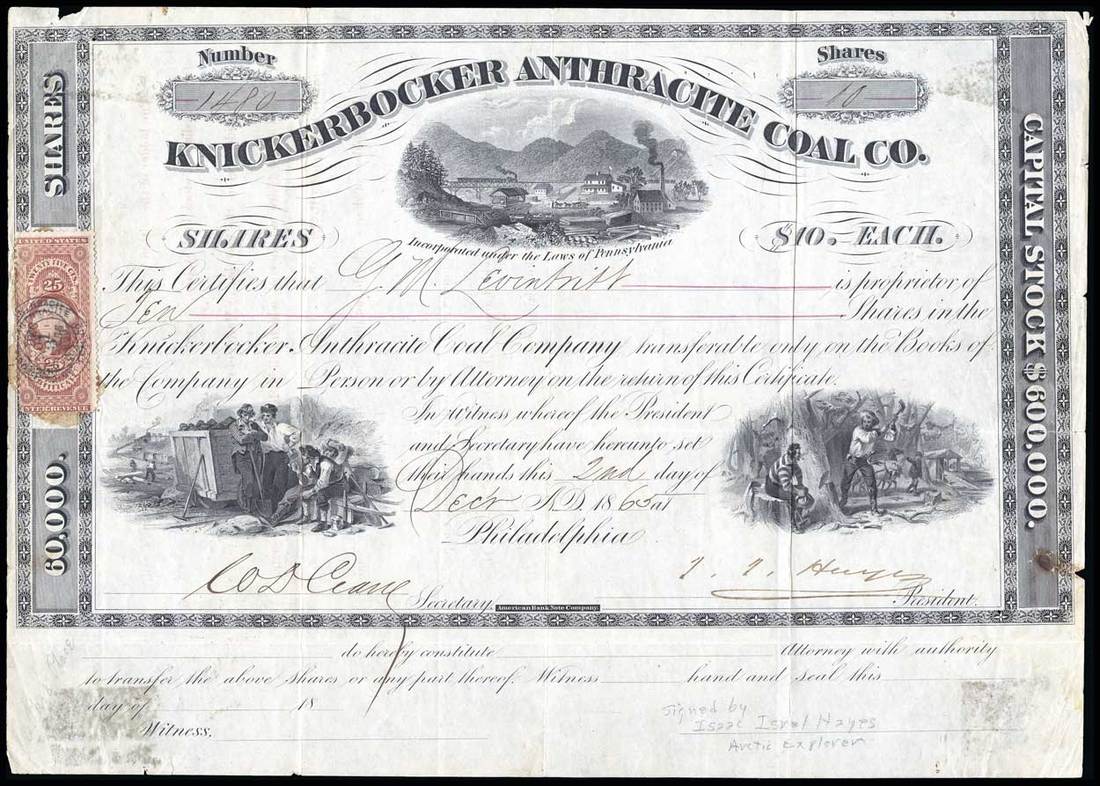 Number
Shares
1480
10
KNICKERBOCKER ANTHRACITE COAL CO.
SHARES
60,000.
CAPITAL STOCK $600,000.
SHARES
Incorporated under the Laws of Pennsylvania
$10.- EACH.
UNITED STATES
TWENTY FIVE CENTS
25
25
CERTIFICATE
INTER. REVENUE
This Certifies that G. M. Levintritt is proprietor of
Ten Shares in the
Knickerbocker Anthracite Coal Company transferable only on the Books of
the Company in Person or by Attorney on the return of this Certificate.
In witness whereof the President
and Secretary have hereunto set
their hands this 2nd day of
Decr A.D. 1865 at
Philadelphia
Secretary.
American Bank Note Company.
President.
do hereby constitute Attorney with authority
to transfer the above shares or any part thereof. Witness hand and seal this
day of 18
Witness.
signed by
Isaac Isrel Hayes
Arctic Explorer